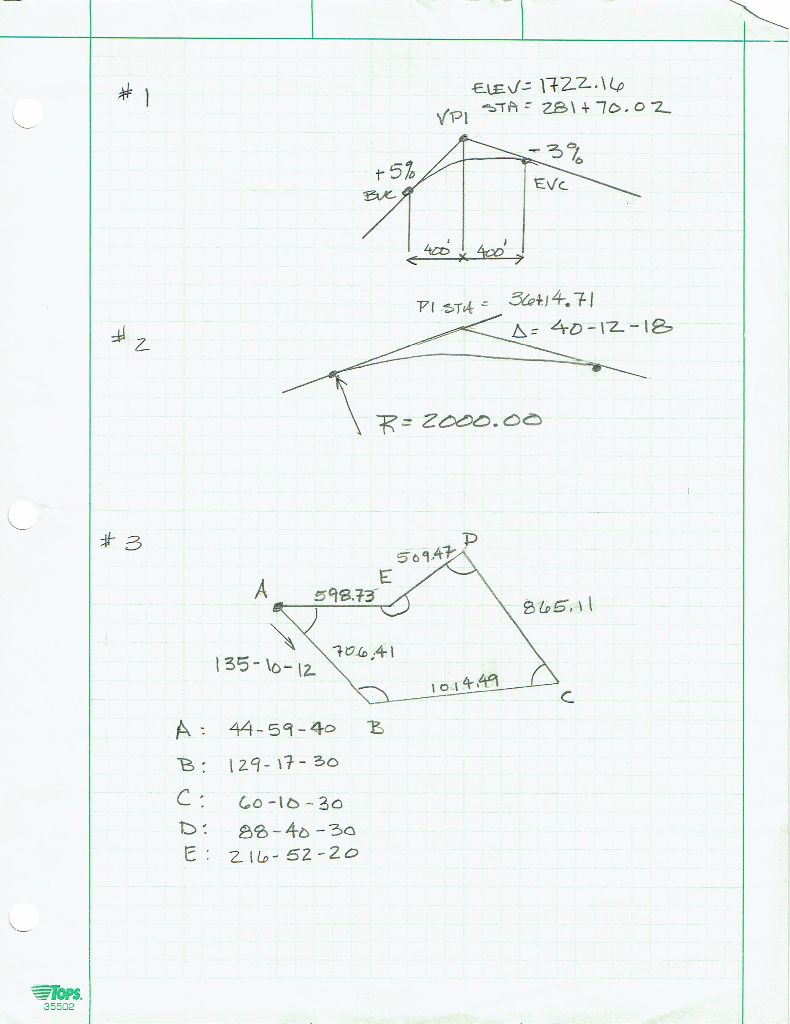 # 1
ELEV= 1722.16
STA = 281+70.02
VPI
+5%
-3%
BVC
EVC
400'
400'
# 2
PI STA = 36+14.71
Δ= 40-12-18
R= 2000.00
# 3
D
509.47
E
A
598.73
865.11
706.41
135-10-12
1014.49
C
B
A: 44-59-40
B: 129-17-30
C: 60-10-30
D: 88-40-30
E: 216-52-20
TOPS.
35502